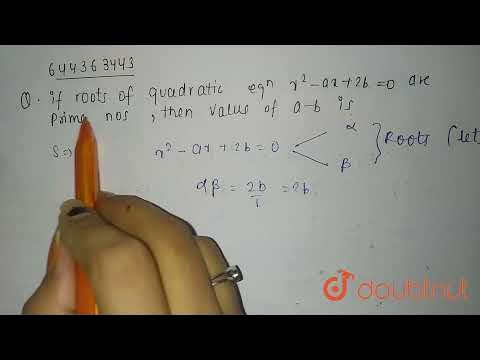 644363443
Q. if roots of quadratic eqn x² - ax + 2b = 0 are
prime nos , then value of a-b is
S ⇒ x² - ax + 2b = 0 α
β } Roots (let
αβ = 2b/1 = 2b
doubtnut